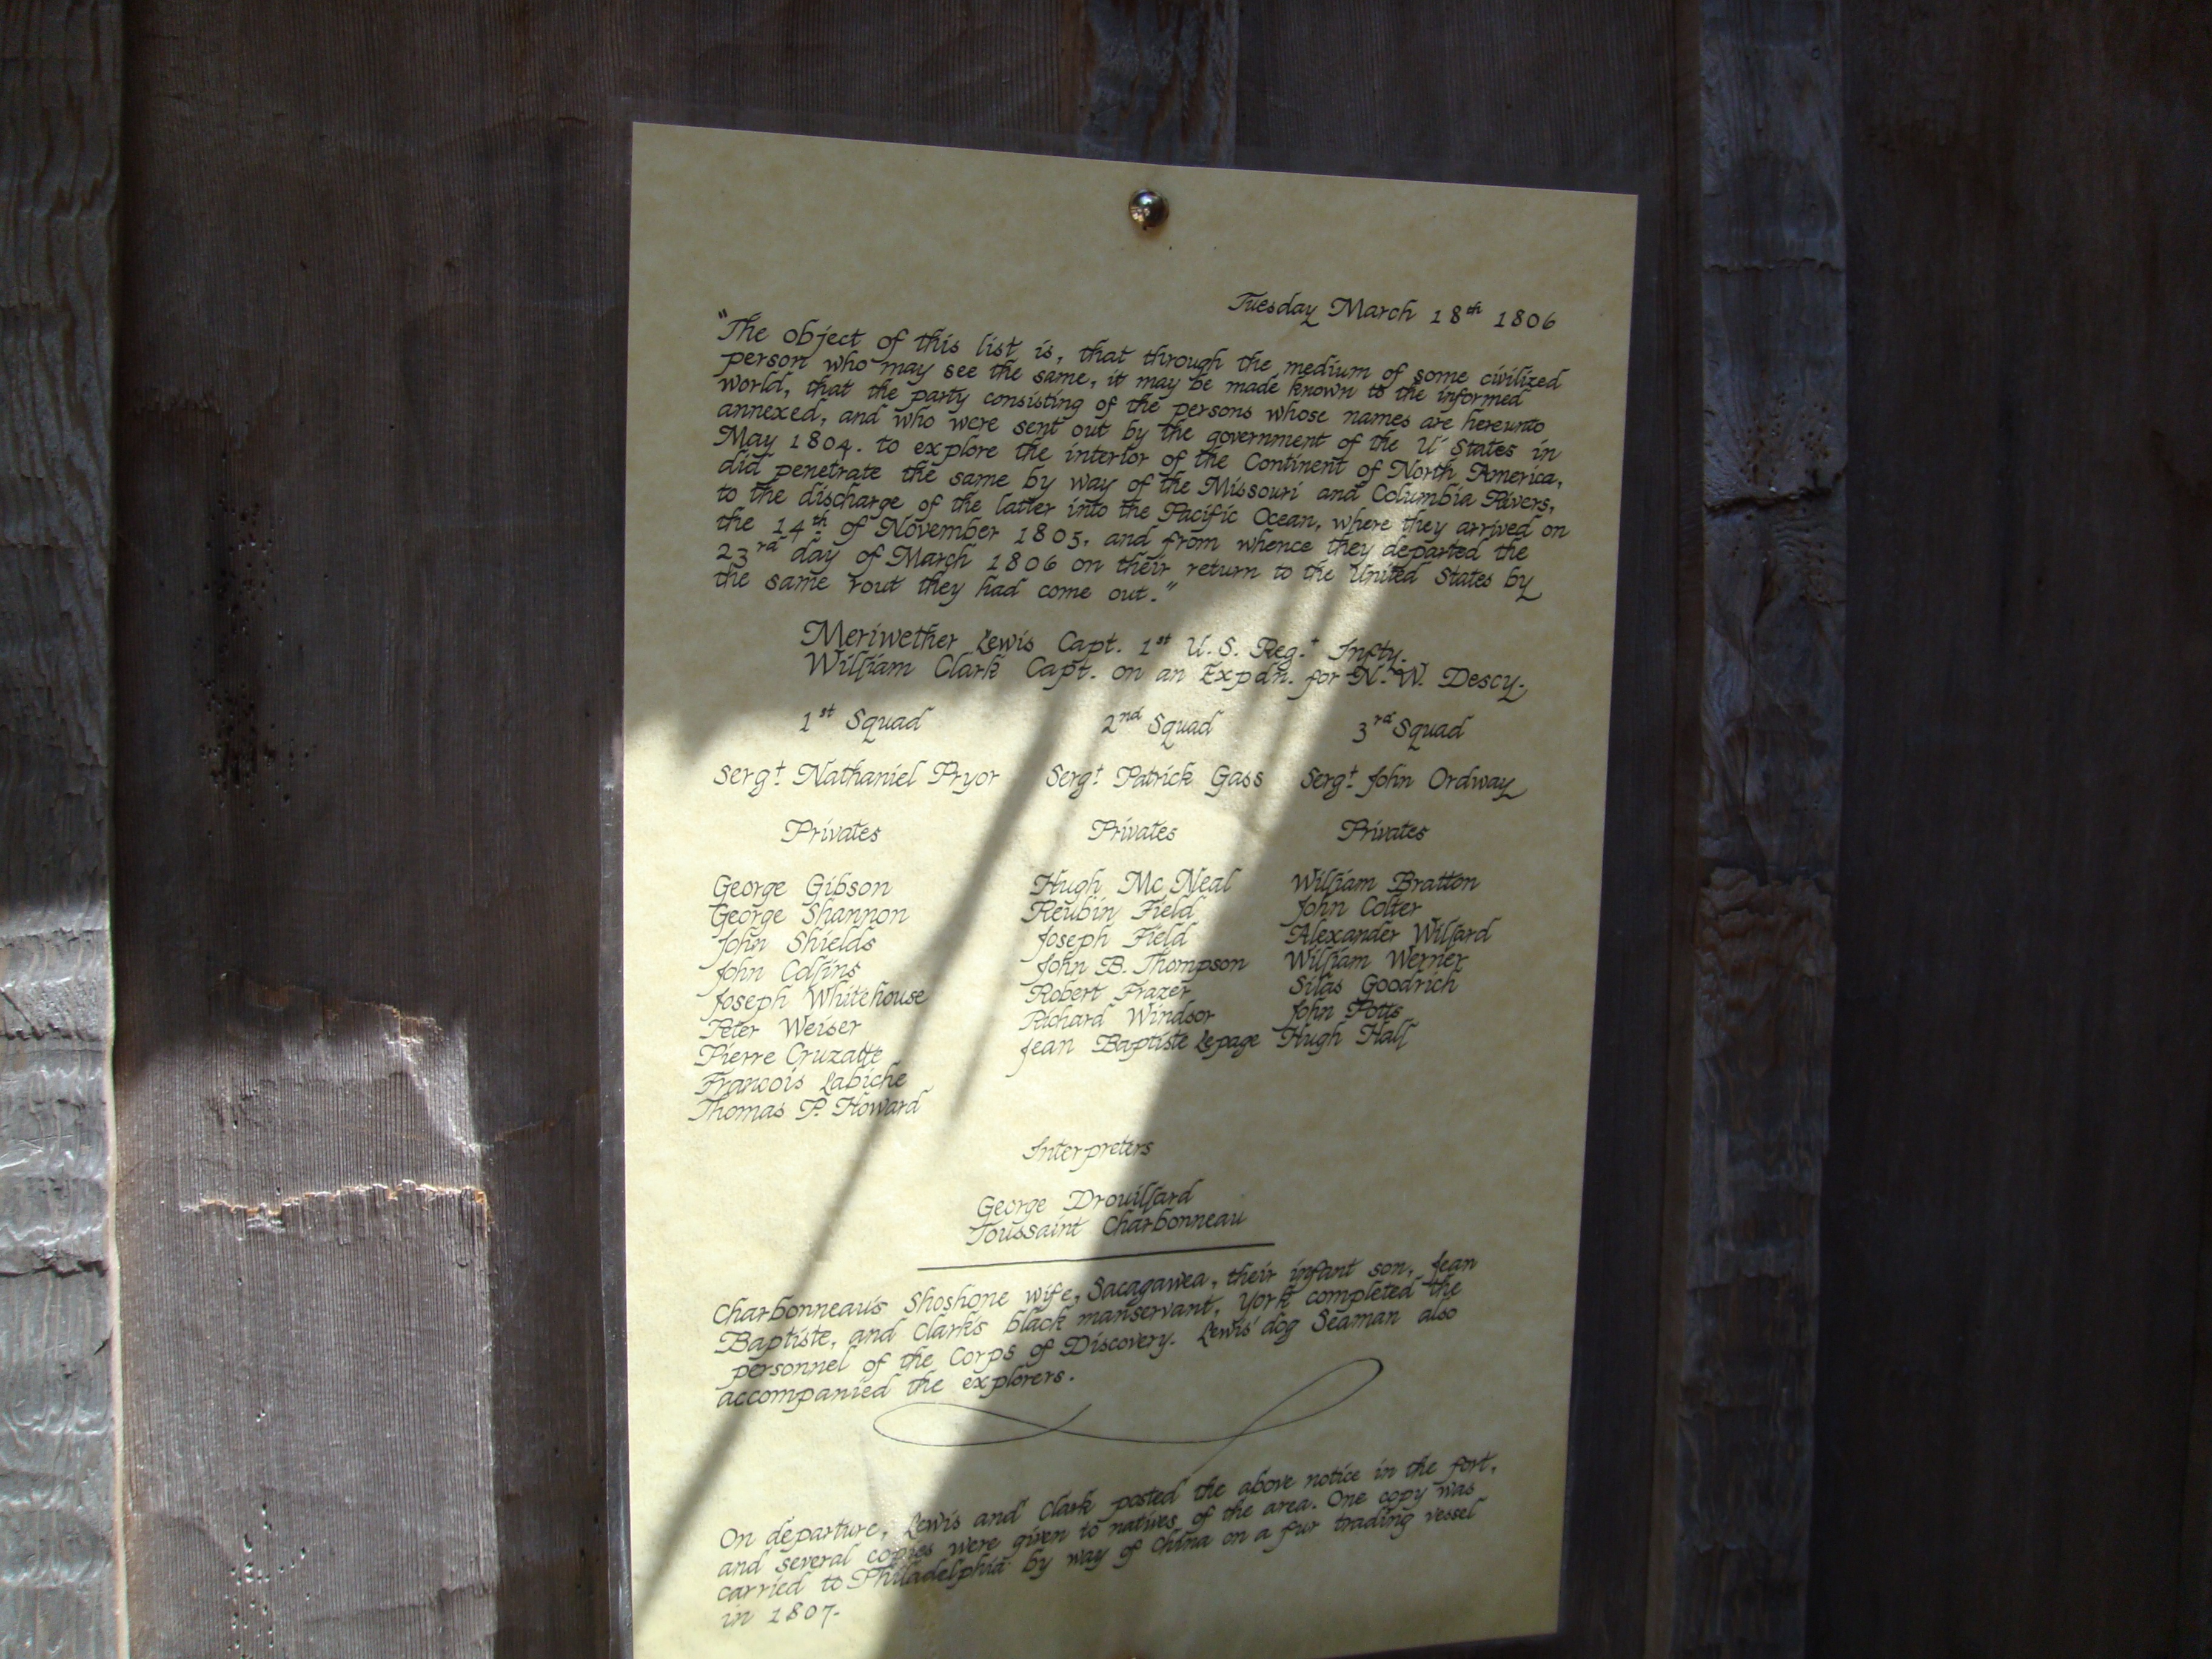 Tuesday March 18th 1806
"The object of this list is, that through the medium of some civilized
person who may see the same, it may be made known to the informed
world, that the party consisting of the persons whose names are hereunto
annexed, and who were sent out by the government of the U States in
May 1804. to explore the interior of the Continent of North America,
did penetrate the same by way of the Missouri and Columbia Rivers,
to the discharge of the latter into the Pacific Ocean, where they arrived on
the 14th of November 1805, and from whence they departed the
23rd day of March 1806 on their return to the United States by
the same rout they had come out."
Meriwether Lewis Capt. 1st U.S. Reg.t Infty.
William Clark Capt. on an Expdn. for N.W. Descy.
1st Squad 2nd Squad 3rd Squad
Serg.t Nathaniel Pryor Serg.t Patrick Gass Serg.t John Ordway
Privates Privates Privates
George Gibson Hugh Mc Neal William Bratton
George Shannon Reubin Field John Colter
John Shields Joseph Field Alexander Willard
John Collins John B. Thompson William Werner
Joseph Whitehouse Robert Frazer Silas Goodrich
Peter Weiser Richard Windsor John Potts
Pierre Cruzatte Jean Baptiste Lepage Hugh Hall
Francois Labiche
Thomas P. Howard
Interpreters
George Drouillard
Toussaint Charbonneau
Charbonneau's Shoshone wife, Sacagawea, their infant son, Jean
Baptiste, and Clark's black manservant, York completed the
personnel of the Corps of Discovery. Lewis' dog Seaman also
accompanied the explorers.
On departure, Lewis and Clark posted the above notice in the fort,
and several copies were given to natives of the area. One copy was
carried to Philadelphia by way of China on a fur trading vessel
in 1807.